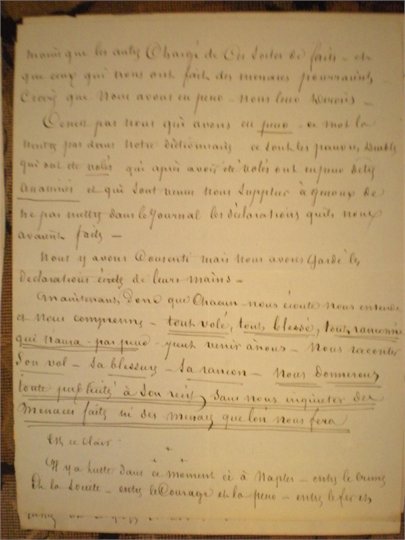 moins que les autres Chargé de Ces sortes de faits – et
que ceux qui nous ont fait des menaces pourraient
Croire que Nous avons eu peur – Nous leur devons –
Ce n'est pas nous qui avons eu peur – ce mot là
pas dans notre dictionnaire ce sont les pauvres Diables
qui ont été volés qui après avoir été volés ont eu peur d'être
assassinés et qui sont venus nous Supplier à genoux de
ne pas mettre dans le Journal les déclarations qu'ils nous
avaient faites –
Nous y avons Consenti mais nous avons gardé les
déclarations écrites de leurs mains –
Maintenant, Donc que Chacun nous écoute nous entende
et nous comprenne – tout volé, tout blessé, tout rançonné
qui n'aura pas peur peut venir à nous – Nous raconter
Son vol – Sa blessure – Sa rançon – Nous donnerons
toute publicité à Son récit, Sans nous inquiéter des
Menaces faites ni des menaces que l'on nous fera
Est ce clair
Il y a lutte dans ce moment ci à Naples – entre le Crime
et la Société – entre le Courage et la peur – entre le fer et